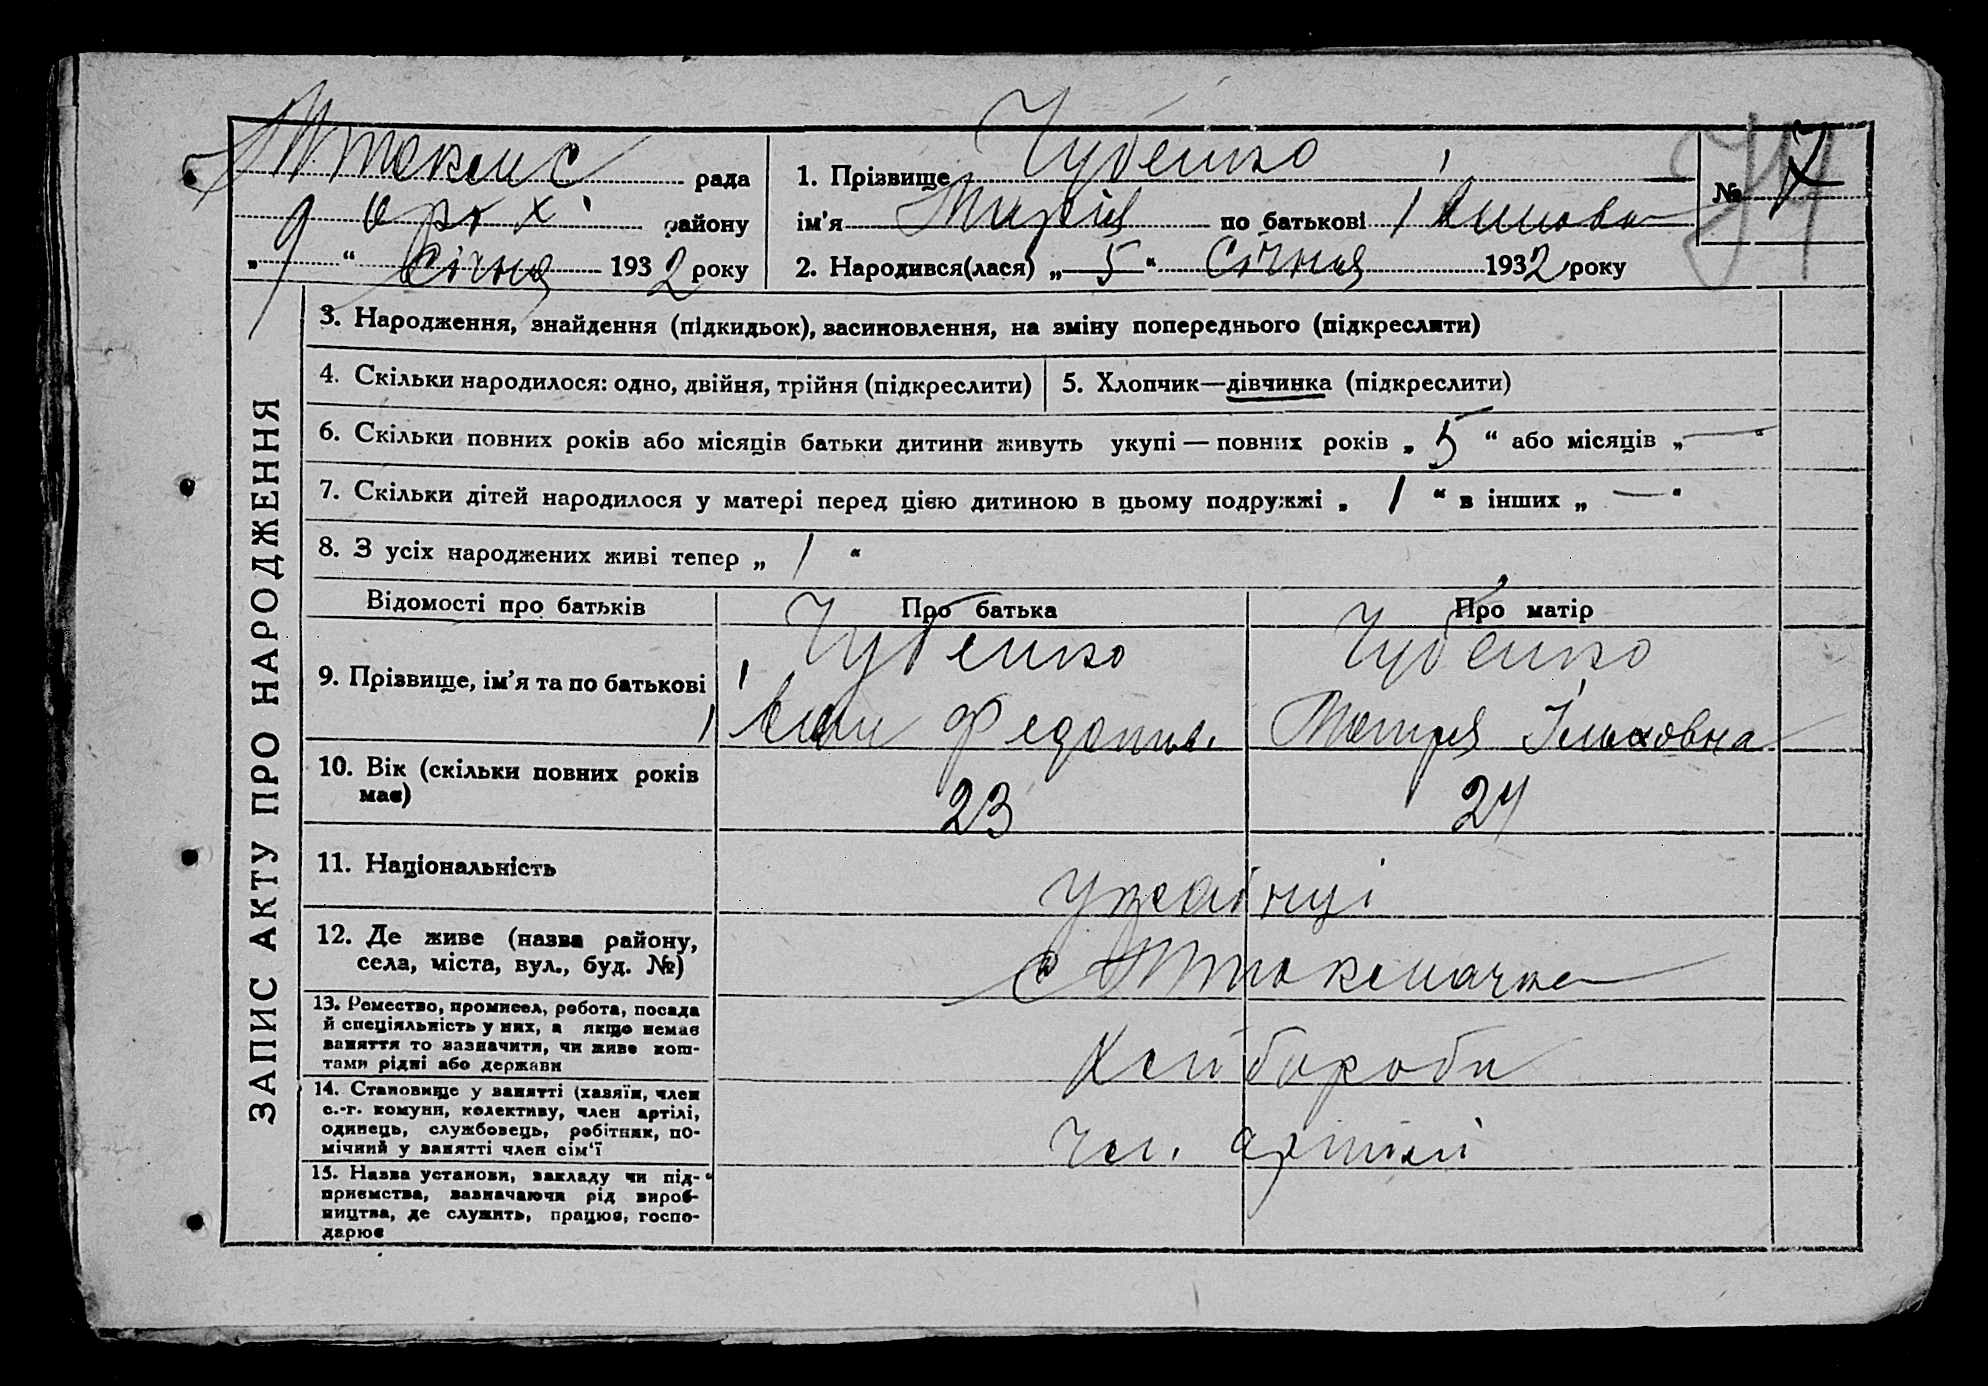 рада
Оріх. району
„ 9 “ Січня 1932 року
1. Прізвище Чубенко
ім'я Марія по батькові
2. Народився(лася) „ 5 “ Січня 1932 року
№ 7
ЗАПИС АКТУ ПРО НАРОДЖЕННЯ
3. Народження, знайдення (підкидьок), засиновлення, на зміну попереднього (підкреслити)
4. Скільки народилося: одно, двійня, трійня (підкреслити)
5. Хлопчик—дівчинка (підкреслити)
6. Скільки повних років або місяців батьки дитини живуть укупі — повних років „ 5 “ або місяців „ — “
7. Скільки дітей народилося у матері перед цією дитиною в цьому подружжі „ 1 “ в інших „ — “
8. З усіх народжених живі тепер „ 1 “
Відомості про батьків Про батька Про матір
9. Прізвище, ім'я та по батькові
Чубенко Чубенко
Мотря Ільковна
10. Вік (скільки повних років має)
23 24
11. Національність
українці
12. Де живе (назва району, села, міста, вул., буд. №)
с
13. Ремество, промисел, робота, посада й спеціяльність у них, а якщо немає заняття то зазначити, чи живе коштами рідні або держави
Хлібороби
14. Становище у занятті (хазяїн, член с.-г. комуни, колективу, член артілі, одинець, службовець, робітник, помічний у занятті член сім'ї
Чл. артілі
15. Назва установи, закладу чи підприємства, зазначаючи рід виробництва, де служить, працює, господарює